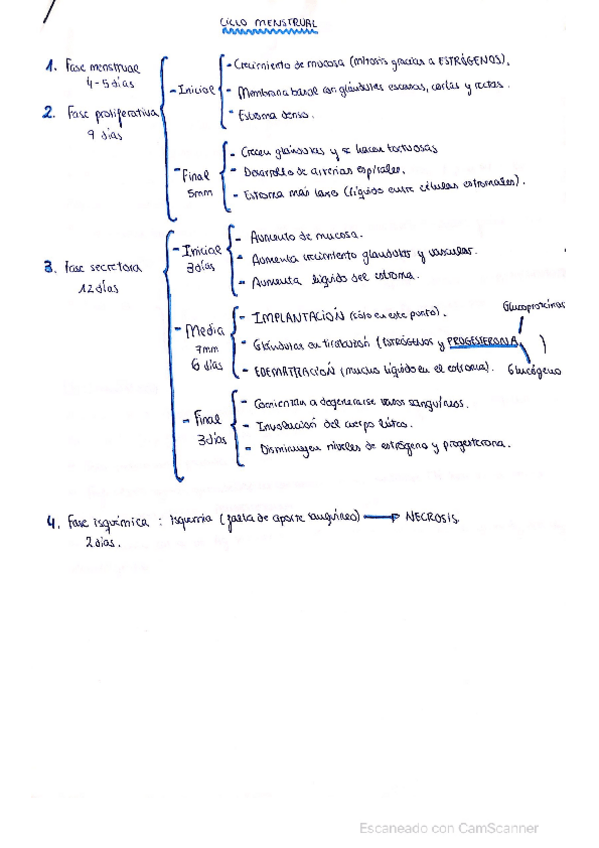 CICLO MENSTRUAL
1. Fase menstrual
4-5 días
2. Fase proliferativa
9 días
- Inicial
- Crecimiento de mucosa (mitosis gracias a ESTRÓGENOS).
- Membrana basal con glándulas escasas, cortas y rectas.
- Estroma denso.
- Final
5mm
- Crecen glándulas y se hacen tortuosas
- Desarrollo de arterias espirales.
- Estroma más laxo (líquido entre células estromales).
3. Fase secretora
12 días
- Inicial
3 días
- Aumento de mucosa.
- Aumenta crecimiento glandular y vascular.
- Aumenta líquido del estroma.
- Media
7mm
6 días
- IMPLANTACIÓN (sólo en este punto).
- Glándulas en tirabuzón (ESTRÓGENOS y PROGESTERONA)
Glucoproteínas
Glucógeno
- EDEMATIZACIÓN (mucho líquido en el estroma).
- Final
3 días
- Comienzan a degenerarse vasos sanguíneos.
- Involución del cuerpo lúteo.
- Disminuyen niveles de estrógeno y progesterona.
4. Fase isquémica : Isquemia (falta de aporte sanguíneo) → NECROSIS.
2 días.
Escaneado con CamScanner